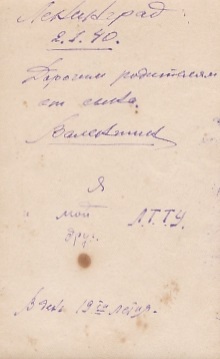 Ленинград.
2.I.40.
Дорогим родителям
от сына.
Валентин
Я
мой Л.Т.Т.У.
друг.
В день 19ти летия.